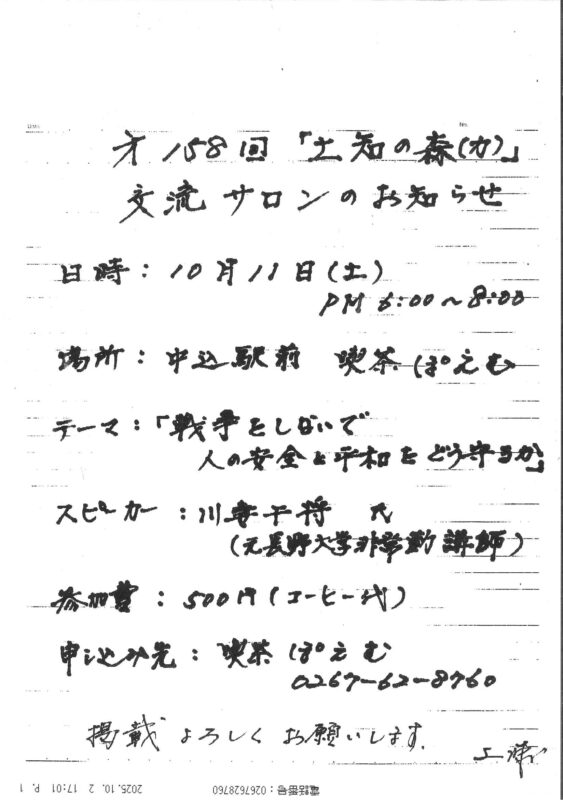 才158回「土知の森(カ)」
交流サロンのお知らせ
日時：10月11日(土)
PM 6:00～8:00
場所：中込駅前 喫茶 ぽえむ
テーマ：「戦争をしないで
人の安全と平和をどう守るか」
スピーカー：川 干将 氏
(元長野大学非常勤講師)
参加費：500円(コーヒー代)
申し込み先：喫茶 ぽえむ
0267-62-8760
掲載よろしくお願いします。
2025.10. 2 17:01 P. 1
電話番号：0267628760